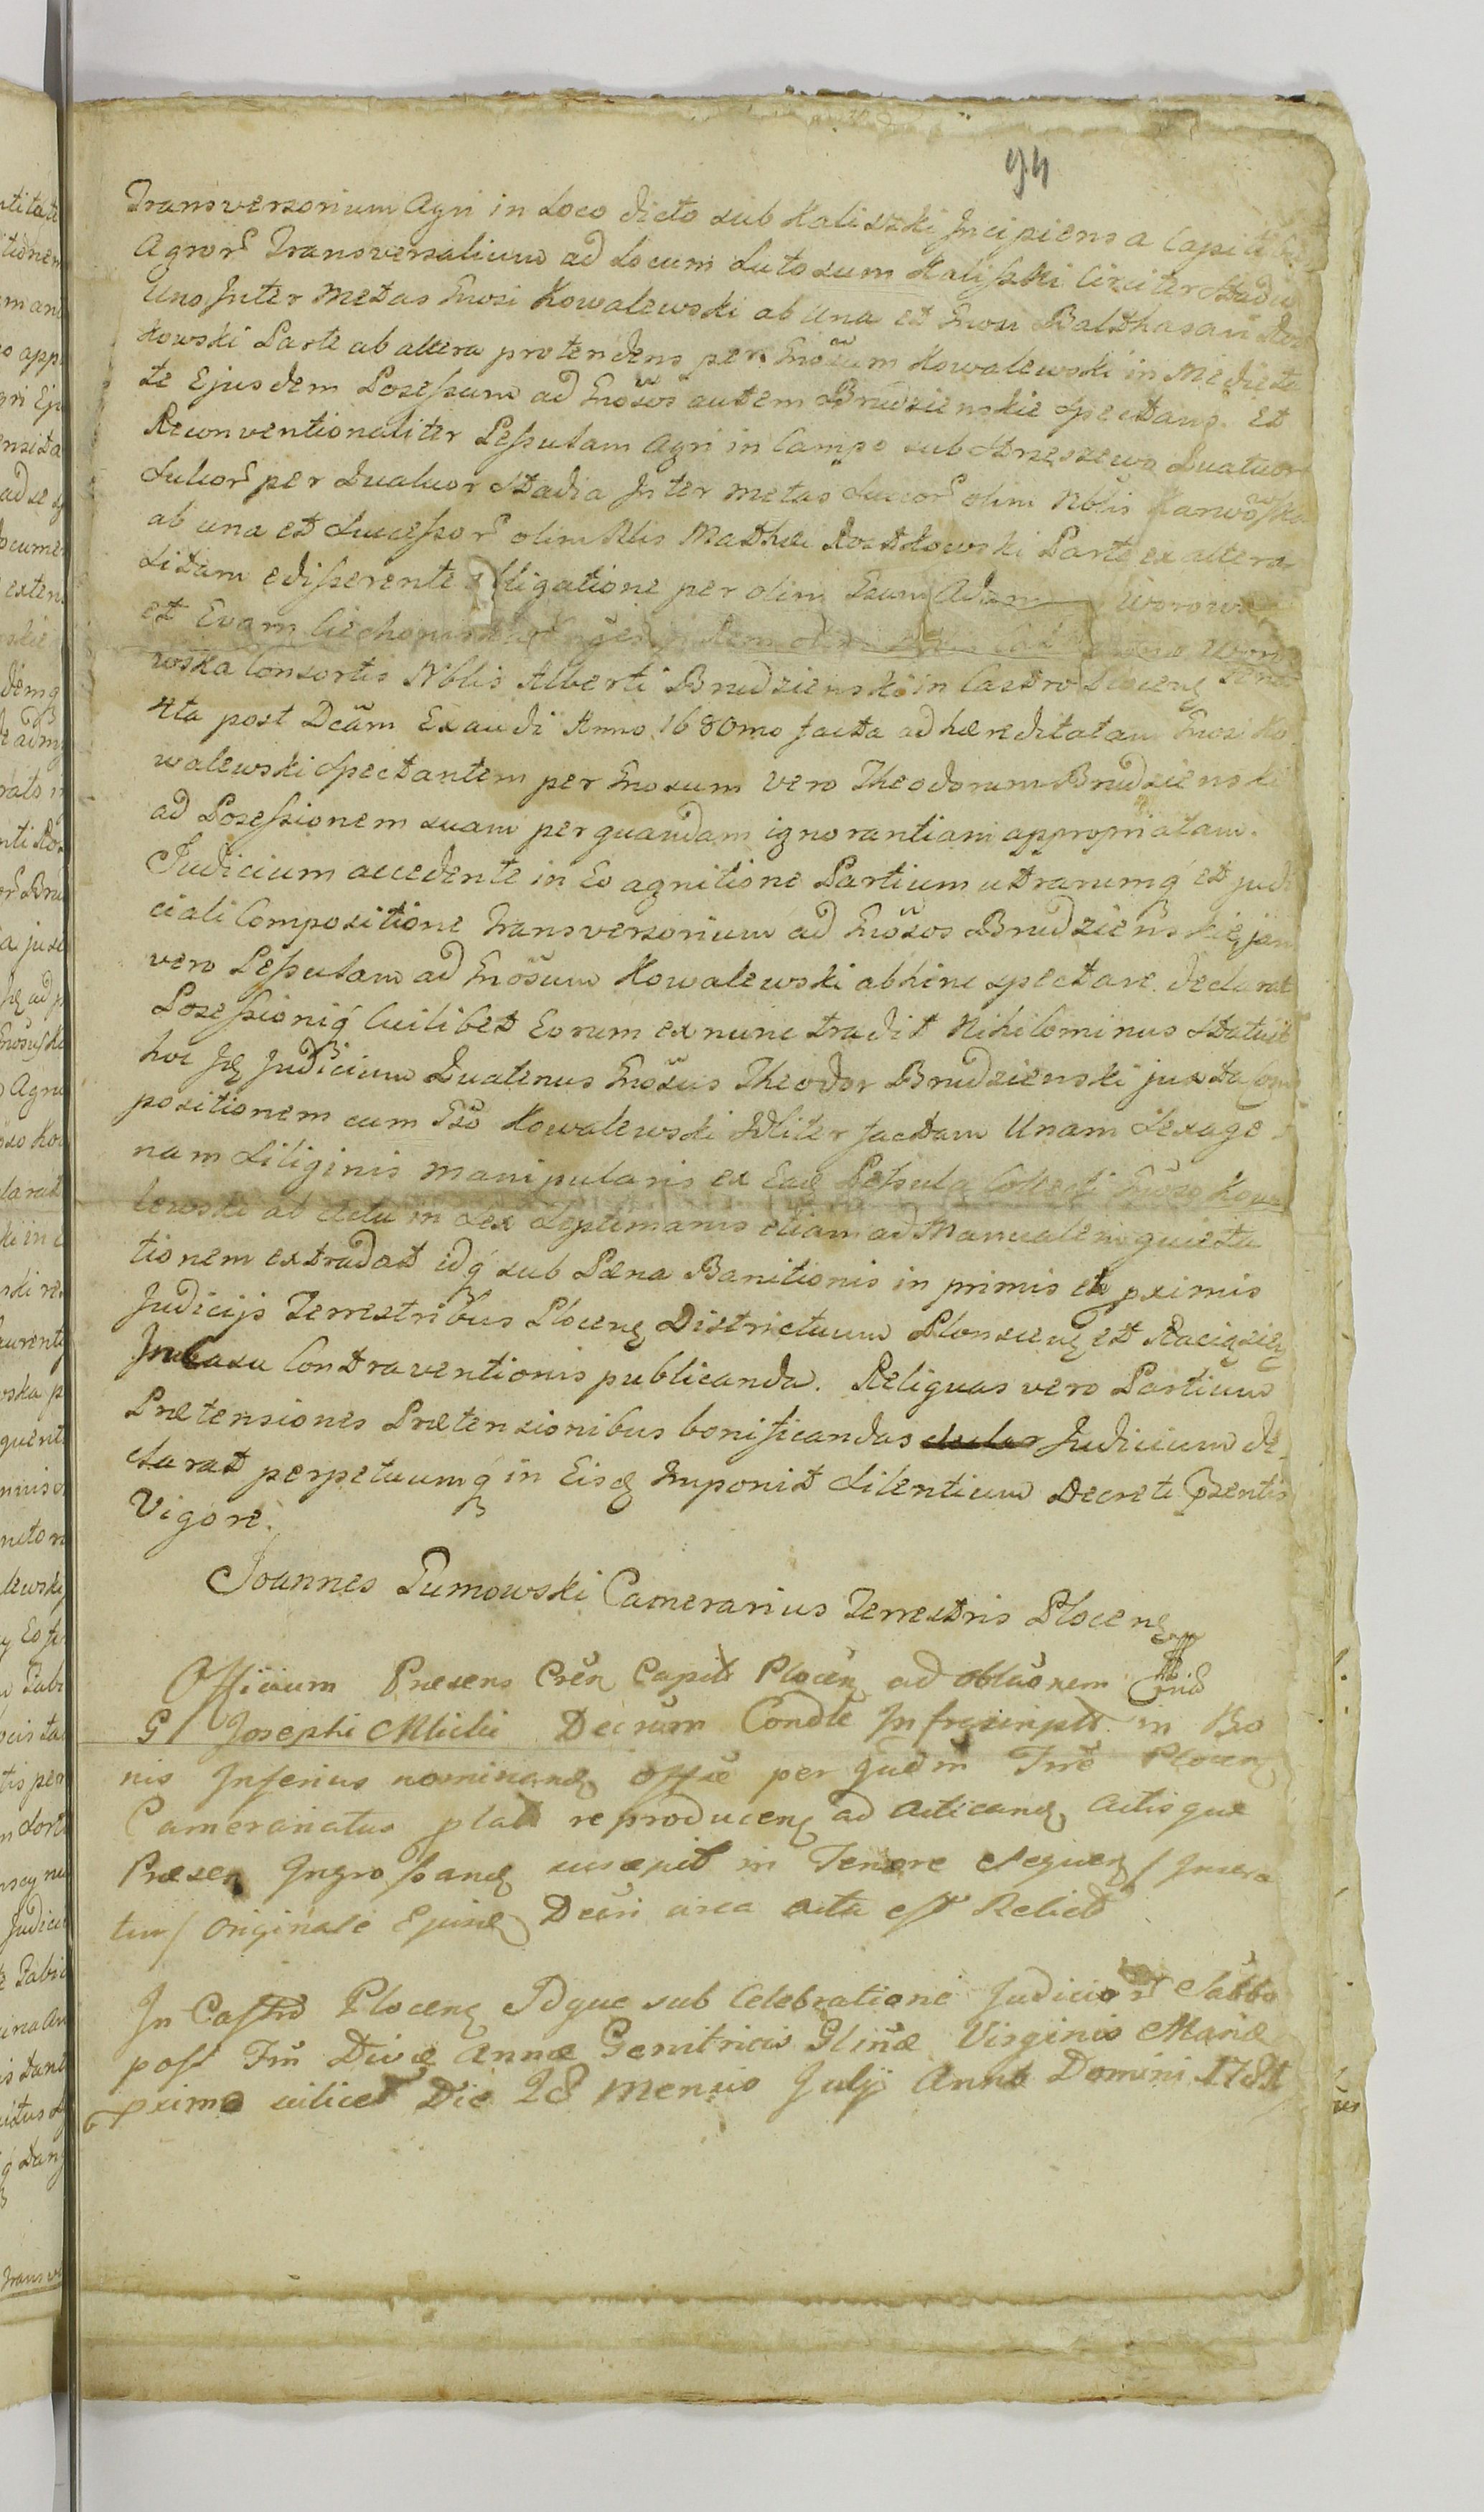 94
Transversorium Agri in Loco dicto sub Kaliszki Incipiens a Capitib
Agror Transversalium ad Locum Lutosum Kaliszki Circiter Stadio
Uno Inter Metas Gnosi Kowalewski ab una et Gnosi Balthasari Ros
kowski Parte ab altera protendens per Gnosum Kowalewski in Medieta
te Ejusdem Possessum ad Gnosos autem Brudzienskie Spectans. et
Reconventionaliter Pessulam Agri in Campo sub Quatuor
Sulcor per Quatuor Stadia Inter metas Succor olim Nblis Karwosk
ab una et Successor olim Nblis Mathei Rostkowski Parte ex altera
Sitam edisserente obligatione per olim Adam
et Evam
wska Consortis Nblis Alberti Brudzienski in Castro Plocen
4ta post Dcam Exaudi Anno 1680mo facta ad hæreditatam Gnosi Ko
walewski Spectantem per Gnosum vero Theodorum Brudzienski
ad Possessionem suam per quandam ignorantiam appropriatam.
Judicium accedente in Eo agnitione Partium utrarumq et judi
ciali Compositione Transversorium ad Gnosos Brudzienskie jam
vero Pessulam ad Gnosum Kowalewski abhinc spectare declarat
Possessioniq Cuilibet Eorum ex nunc tradit Nihilominus Statuit
hoc Judicium Quatenus Gnosus Theodor Brudzienski juxta Com
positionem cum Gso Kowalewski factam Unam Sexage
nam Siliginis manipularis ex Ead Pessula Collecti Gnoso Kowa
lewski ab Actu in Sex Septimanis etiam ad Manualem quieta
tionem extradat idq sub Pæna Banitionis in primis et pximis
Judicijs Terrestribus Plocen Districtuum Plonscen et Raciązien
In Casu Contraventionis publicanda. Reliquas vero Partium
Prætensiones Prætensionibus bonificandas Judicium de
clarat perpetuumq in Eisd Imponit Silentium Decreti Pzentis
Vigore.
Joannes Gumowski Camerarius Terrestris Plocen
Officium Præsens Cren Capit Plocen ad oblaonem
G Josephi Decrum Condle Infrascript in Bo
nis Inferius nominand offse per Judm Trre Plocen
Cameranatus plat reproducen ad acticand actisque
Præsen Ingrossand suscepit in Tenore Sequen / Insera
tur / Originale Ejusd Decri circa acta est Relict
In Castro Plocen Idque sub Celebratione Judicior Sabbo
post Fm Divæ Annæ Genitricis Glinæ Virginis Mariæ
pximo scilicet Die 28 Mensis Julij Anno Domini